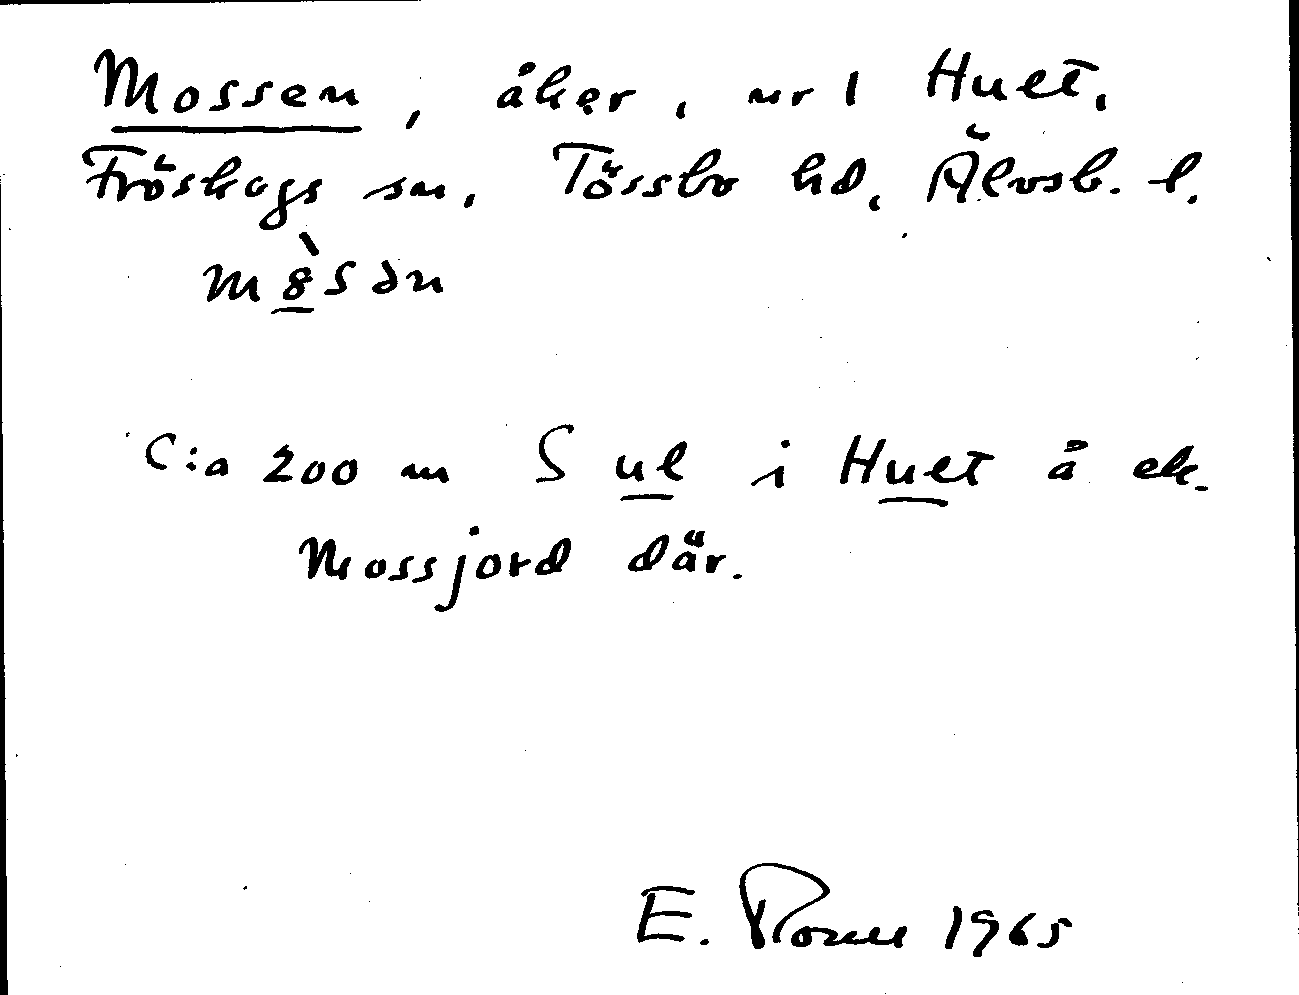 Mossen, åker, nr 1 Huet,
Fröskogs sn, Tössbo hd, Älvsb. l.
m8̀sən
C:a 200 m S ul i Huet å ek.
Mossjord där.
E. 1965